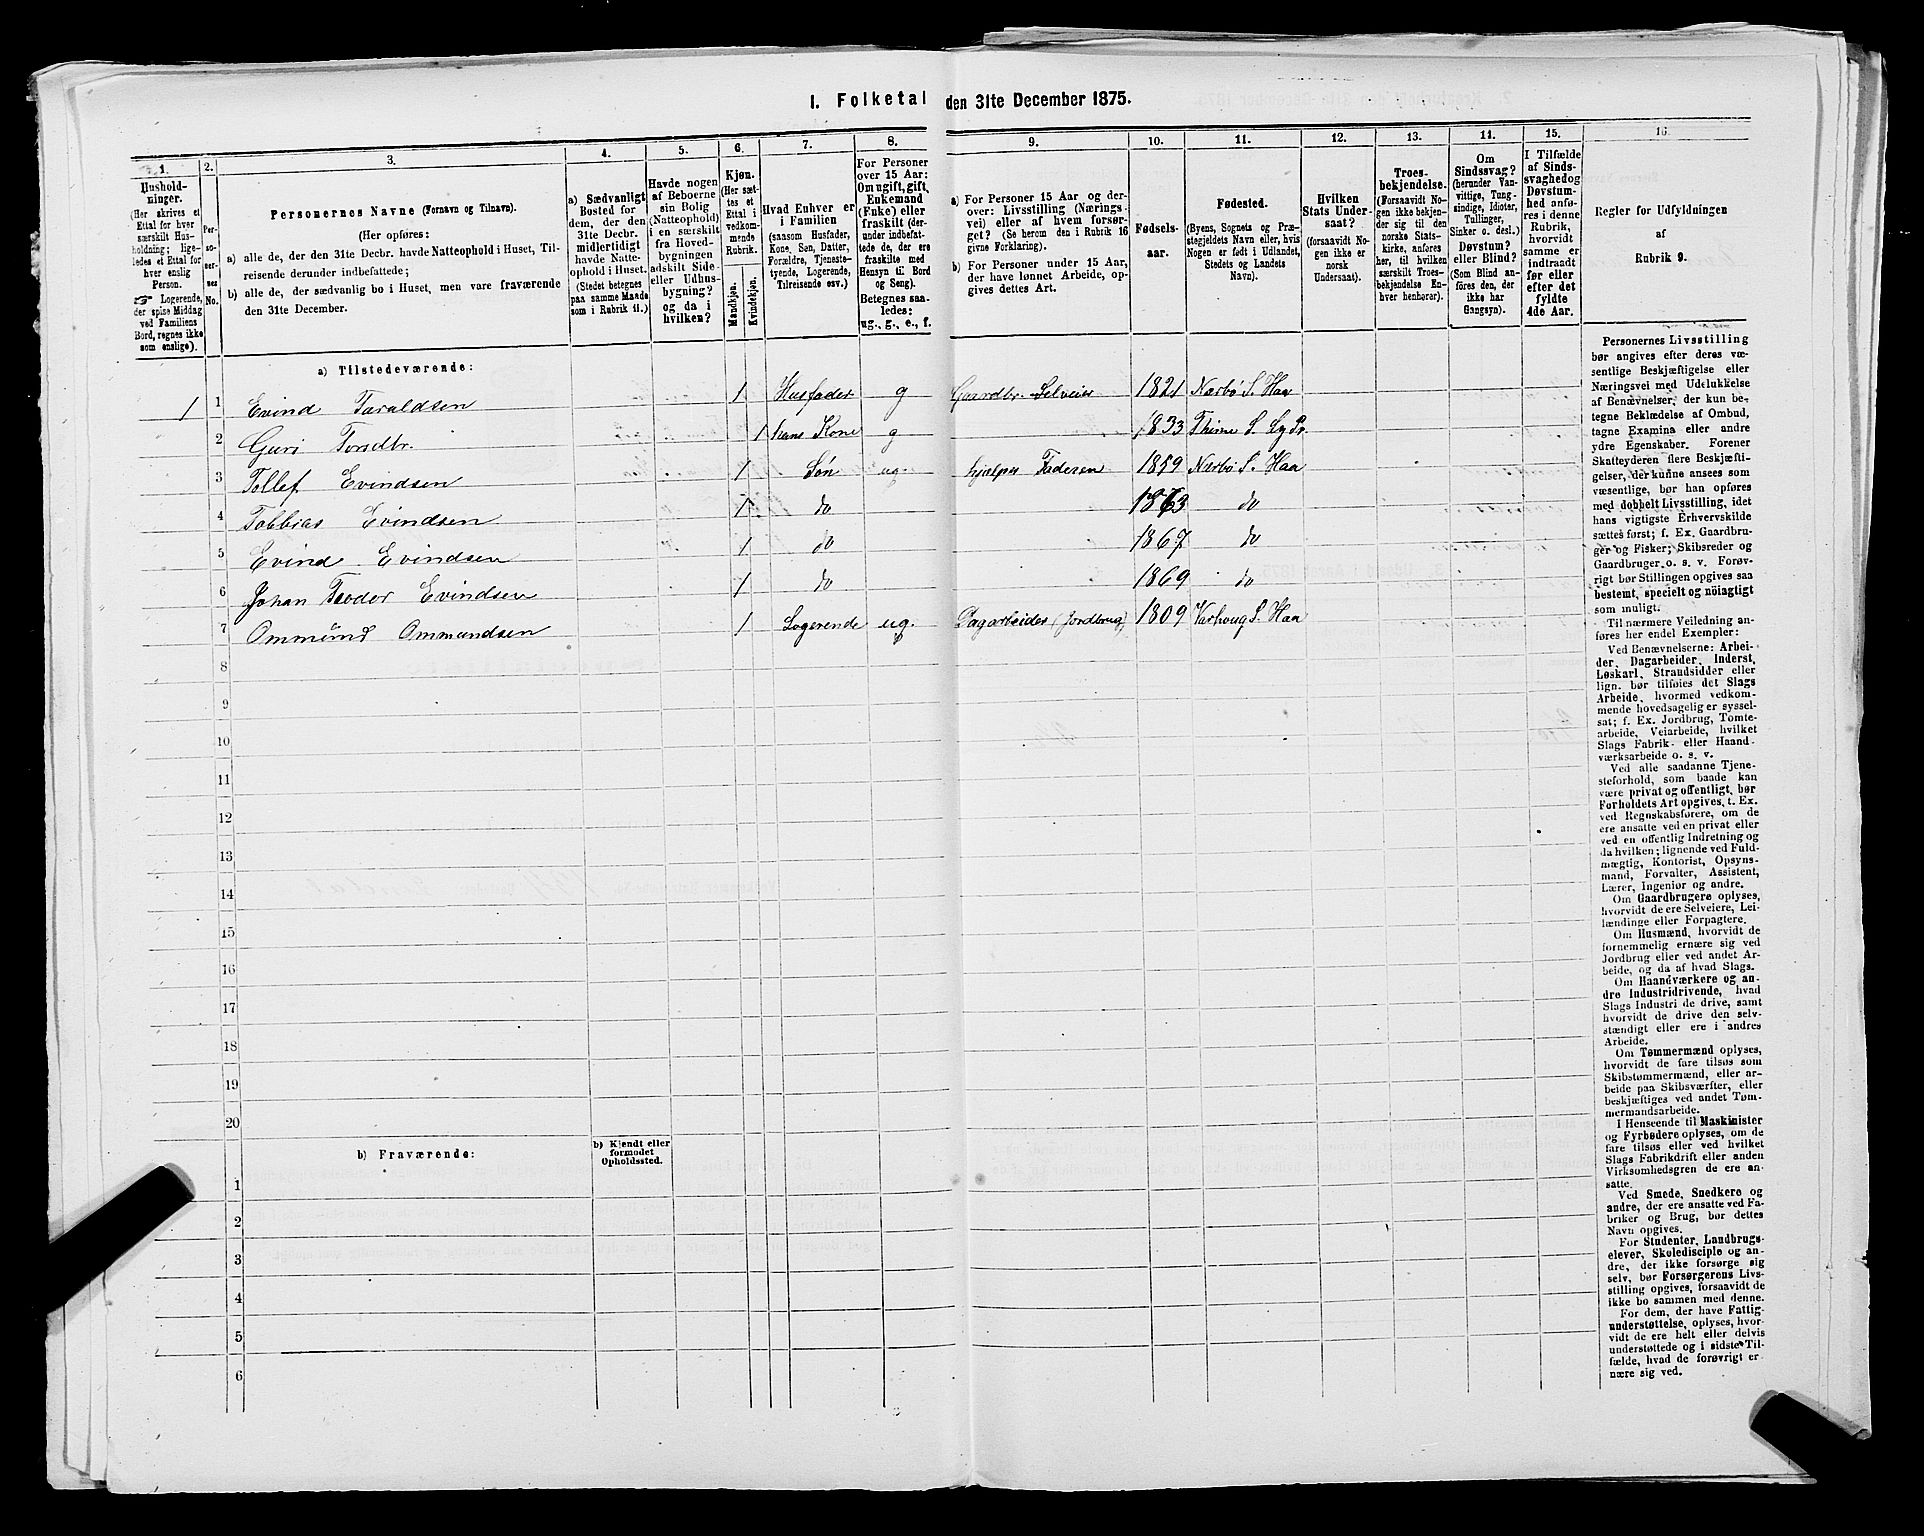 1. Folketal den 31te December 1875.
1. 2. 3. 4. 5. 6. 7. 8. 9. 10. 11. 12. 13. 14. 15. 16.
Hushold-
ninger.
(Her skrives et
Ettal for hver
særskilt Hus-
holdning; lige-
ledes et Ettal for
hver enslig
Person.
☞ Logerende,
der spise Middag
ved Familiens
Bord, regnes ikke
som enslige).
Per-
so-
ner-
nes
No.
Personernes Navne (Fornavn og Tilnavn).
(Her opføres:
a) alle de, der den 31te Decbr. havde Natteophold i Huset, Til-
reisende derunder indbefattede;
b) alle de, der sædvanlig bo i Huset, men vare fraværende
den 31te December.
a) Sædvanligt
Bosted for
dem, der den
31te Decbr.
midlertidigt
havde Natte-
ophold i Huset.
(Stedet betegnes
paa samme Maade
som i Rubrik 11.)
Havde nogen
af Beboerne
sin Bolig
(Natteophold)
i en særskilt
fra Hoved-
bygningen
adskilt Side-
eller Udhus-
bygning?
og da i
hvilken?
Kjøn.
(Her sæt-
tes et
Ettal i
vedkom-
mende
Rubrik.
Mandkjøn.
Kvindekjøn.
Hvad Enhver er
i Familien
(saasom Husfader,
Kone, Søn, Datter,
Forældre, Tjeneste-
tyende, Logerende,
Tilreisende osv.)
For Personer
over 15 Aar:
Om ugift, gift,
Enkemand
(Enke) eller
fraskilt (der-
under indbefat-
tede de, der ere
fraskilte med
Hensyn til Bord
og Seng).
Betegnes saa-
ledes:
ug., g., e., f.
a) For Personer 15 Aar og der-
over: Livsstilling (Nærings-
vei) eller af hvem forsør-
get? (Se herom den i Rubrik 16
givne Forklaring).
b) For Personer under 15 Aar,
der have lønnet Arbeide, op-
gives dettes Art.
Fødsels-
aar.
Fødested.
(Byens, Sognets og Præ-
stegjeldets Navn eller, hvis
Nogen er født i Udlandet,
Stedets og Landets
Navn).
Hvilken
Stats Under-
saat?
(forsaavidt No-
gen ikke er
norsk
Undersaat).
Troes-
bekjendelse.
(Forsaavidt No-
gen ikke bekjen-
der sig til den
norske Stats-
kirke, anføres
her, til hvilken
særskilt Troes-
bekjendelse En-
hver henhører).
Om
Sindssvag?
(herunder Van-
vittige, Tung-
sindige, Idioter,
Tullinger,
Sinker o. desl.)
Døvstum?
eller Blind?
(Som Blind an-
føres den, der
ikke har
Gangsyn).
I Tilfælde
af Sinds-
svaghed og
Døvstum-
hed anfø-
res i denne
Rubrik,
hvorvidt
samme er
indtraadt
før eller
efter det
fyldte
4de Aar.
Regler for Udfyldningen
af
Rubrik 9.
a) Tilstedeværende:
1 1 Evind Taraldsen 1 Husfader g Gaardbr. Selveier 1821 Nærbø S. Haa
2 Guri Torsdtr. 1 hans Kone g 1833 Thime S. Ly Pr.
3 Tollef Evindsen 1 Søn ug. hjælper Faderen 1859 Nærbø S. Haa
4 Tobbias Evindsen 1 do 1863 do
5 Evind Evindsen 1 do 1867 do
6 Johan Teodor Evindsen 1 do 1869 do
7 Ommund Ommundsen 1 Logerende ug. Dagarbeider (Jordbrug) 1809 Varhoug S. Haa
8
9
10
11
12
13
14
15
16
17
18
19
20
b) Fraværende:
b) Kjendt eller
formodet
Opholdssted.
1
2
3
4
5
6
Personernes Livsstilling
bør angives efter deres væ-
sentlige Beskjæftigelse eller
Næringsvei med Udelukkelse
af Benævnelser, der kun be-
tegne Beklædelse af Ombud,
tagne Examina eller andre
ydre Egenskaber. Forener
Skatteyderen flere Beskjæfti-
gelser, der kunne ansees som
væsentlige, bør han opføres
med dobbelt Livsstilling, idet
hans vigtigste Erhvervskilde
sættes først; f. Ex. Gaardbru-
ger og Fisker; Skibsreder og
Gaardbruger o. s. v. Forøv-
rigt bør Stillingen opgives saa
bestemt, specielt og nøiagtigt
som muligt.
Til nærmere Veiledning an-
føres her endel Exempler:
Ved Benævnelserne: Arbei-
der, Dagarbeider, Inderst,
Løskarl, Strandsidder eller
lign. bør tilføies det Slags
Arbeide, hvormed vedkom-
mende hovedsagelig er syssel-
sat; f. Ex. Jordbrug, Tomte-
arbeide, Veiarbeide, hvilket
Slags Fabrik- eller Haand-
værksarbeide o. s. v.
Ved alle saadanne Tjene-
steforhold, som baade kan
være privat og offentligt, bør
Forholdets Art opgives, t. Ex.
ved Regnskabsførere, om de
ere ansatte ved en privat eller
ved en offentlig Indretning og
da hvilken; lignende ved Fuld-
mægtig, Kontorist, Opsyns-
mand, Forvalter, Assistent,
Lærer, Ingeniør og andre.
Om Gaardbrugere oplyses,
hvorvidt de ere Selveiere, Lei-
lændinge eller Forpagtere.
Om Husmænd, hvorvidt de
fornemmelig ernære sig ved
Jordbrug eller ved andet Ar-
beide, og da af hvad Slags.
Om Haandværkere og an-
dre Industridrivende, hvad
Slags Industri de drive, samt
hvorvidt de drive den selv-
stændigt eller ere i andres
Arbeide.
Om Tømmermænd oplyses,
hvorvidt de fare tilsøs som
Skibstømmermænd, eller ar-
beide paa Skibsværfter, eller
beskjæftiges ved andet Tøm-
mermandsarbeide.
I Henseende til Maskinister
og Fyrbødere oplyses, om de
fare tilsøs eller ved hvilket
Slags Fabrikdrift eller anden
Virksomhedsgren de ere an-
satte.
Ved Smede, Snedkere og
andre, der ere ansatte ved Fa-
briker og Brug, bør dettes
Navn opgives.
For Studenter, Landbrugs-
elever, Skoledisciple og an-
dre, der ikke forsørge sig
selv, bør Forsørgerens Livs-
stilling opgives, forsaavidt de
ikke bo sammen med denne.
For dem, der have Fattig-
understøttelse, oplyses, hvor-
vidt de ere helt eller delvis
understøttede og i sidste Til-
fælde, hvad de forøvrigt er-
nære sig ved.